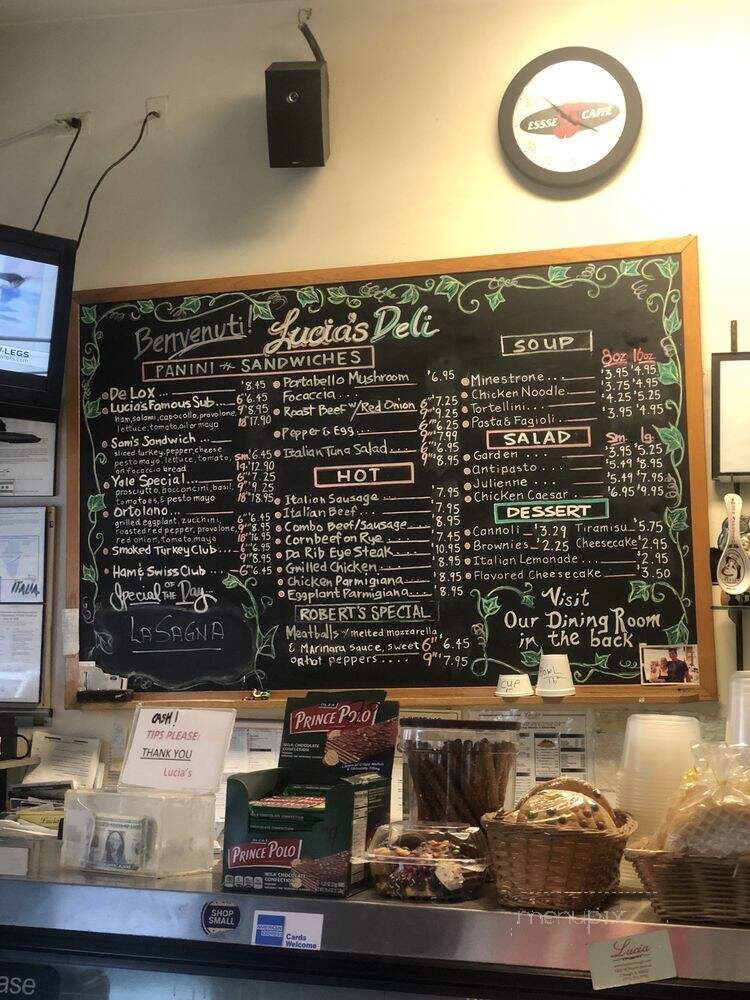 ESSSE CAFFÈ
Benvenuti! Lucia's Deli
PANINI & SANDWICHES
De Lox $8.45
Lucia's Famous Sub 6" 6.45
ham, salami, capocollo, provolone, 9" 8.95
lettuce, tomato, oil or mayo 18" 17.90
Sam's Sandwich
sliced turkey, pepper cheese
pesto mayo, lettuce, tomato, sm. $6.45
on focaccia bread lg. $12.90
Yale Special 6" $7.25
prosciutto, bocconcini, basil, 9" $9.25
tomatoes, & pesto mayo 18" $18.95
Ortolano
grilled eggplant, zucchini, 6" $6.45
roasted red pepper, provolone, 9" $8.95
red onion, tomato, mayo 18" $16.95
Smoked Turkey Club 6" $6.95
9" $8.95
Ham & Swiss Club 6" $6.45
Special OF THE Day
LASAGNA
Portabello Mushroom $6.95
Focaccia
Roast Beef w/ Red Onion 6" $7.25
9" $9.25
Pepper & Egg 6" $6.25
9" $7.99
Italian Tuna Salad 6" $6.95
9" $8.95
HOT
Italian Sausage 7.95
Italian Beef 7.95
Combo Beef/Sausage 8.95
Cornbeef on Rye 7.45
Da Rib Eye Steak $10.95
Grilled Chicken $8.95
Chicken Parmigiana $8.95
Eggplant Parmigiana $8.95
ROBERT'S SPECIAL
Meatballs w/ melted mozzarella
& Marinara sauce, sweet 6" $6.45
or hot peppers 9" $7.95
SOUP
8oz 16oz
Minestrone $3.95 $4.95
Chicken Noodle $3.75 $4.95
Tortellini $4.25 $5.25
Pasta & Fagioli $3.95 $4.95
SALAD
Sm. lg.
Garden $3.95 $5.25
Antipasto $5.49 $8.95
Julienne $5.49 $7.95
Chicken Caesar $6.95 $9.95
DESSERT
Cannoli $3.29 Tiramisu $5.75
Brownies $2.25 Cheesecake $2.95
Italian Lemonade $2.95
Flavored Cheesecake $3.50
Visit
Our Dining Room
in the back
CUP
BOWL
ITALIA
CASH!
TIPS PLEASE:
THANK YOU
Lucia's
PRINCE POLO
MILK CHOCOLATE
CONFECTION
PRINCE POLO
MILK CHOCOLATE
CONFECTION
SHOP
SMALL
AMERICAN
EXPRESS
Cards
Welcome
Lucia
menupix